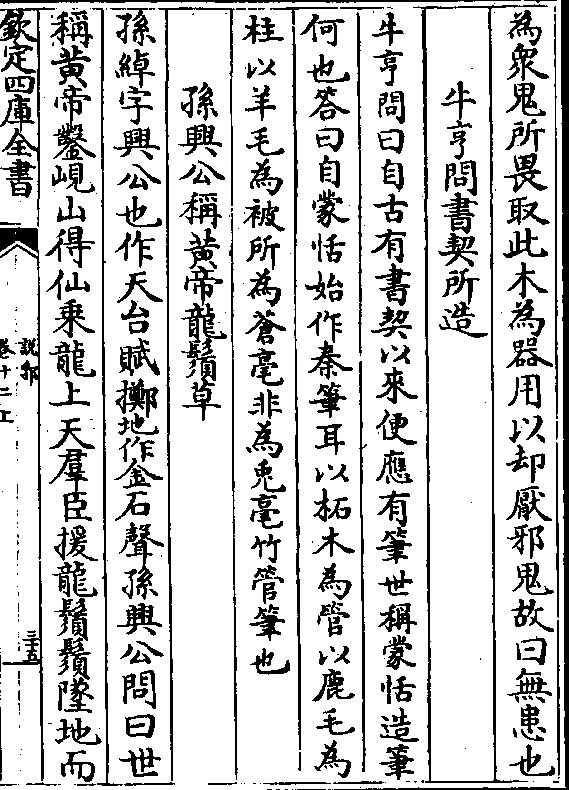 為衆鬼所畏取此木為器用以却厭邪鬼故曰無患也
牛亨問書契所造
牛亨問曰自古有書契以來便應有筆世稱蒙恬造筆
何也答曰自蒙恬始作秦筆耳以柘木為管以鹿毛為
柱以羊毛為被所為蒼毫非為兎毫竹管筆也
孫興公稱黄帝龍鬚草
孫綽字興公也作天台賦擲地作金石聲孫興公問曰世
稱黄帝鑿峴山得仙乘龍上天羣臣援龍鬚鬚墜地而
欽定四庫全書
說郛
卷十二上
三十五